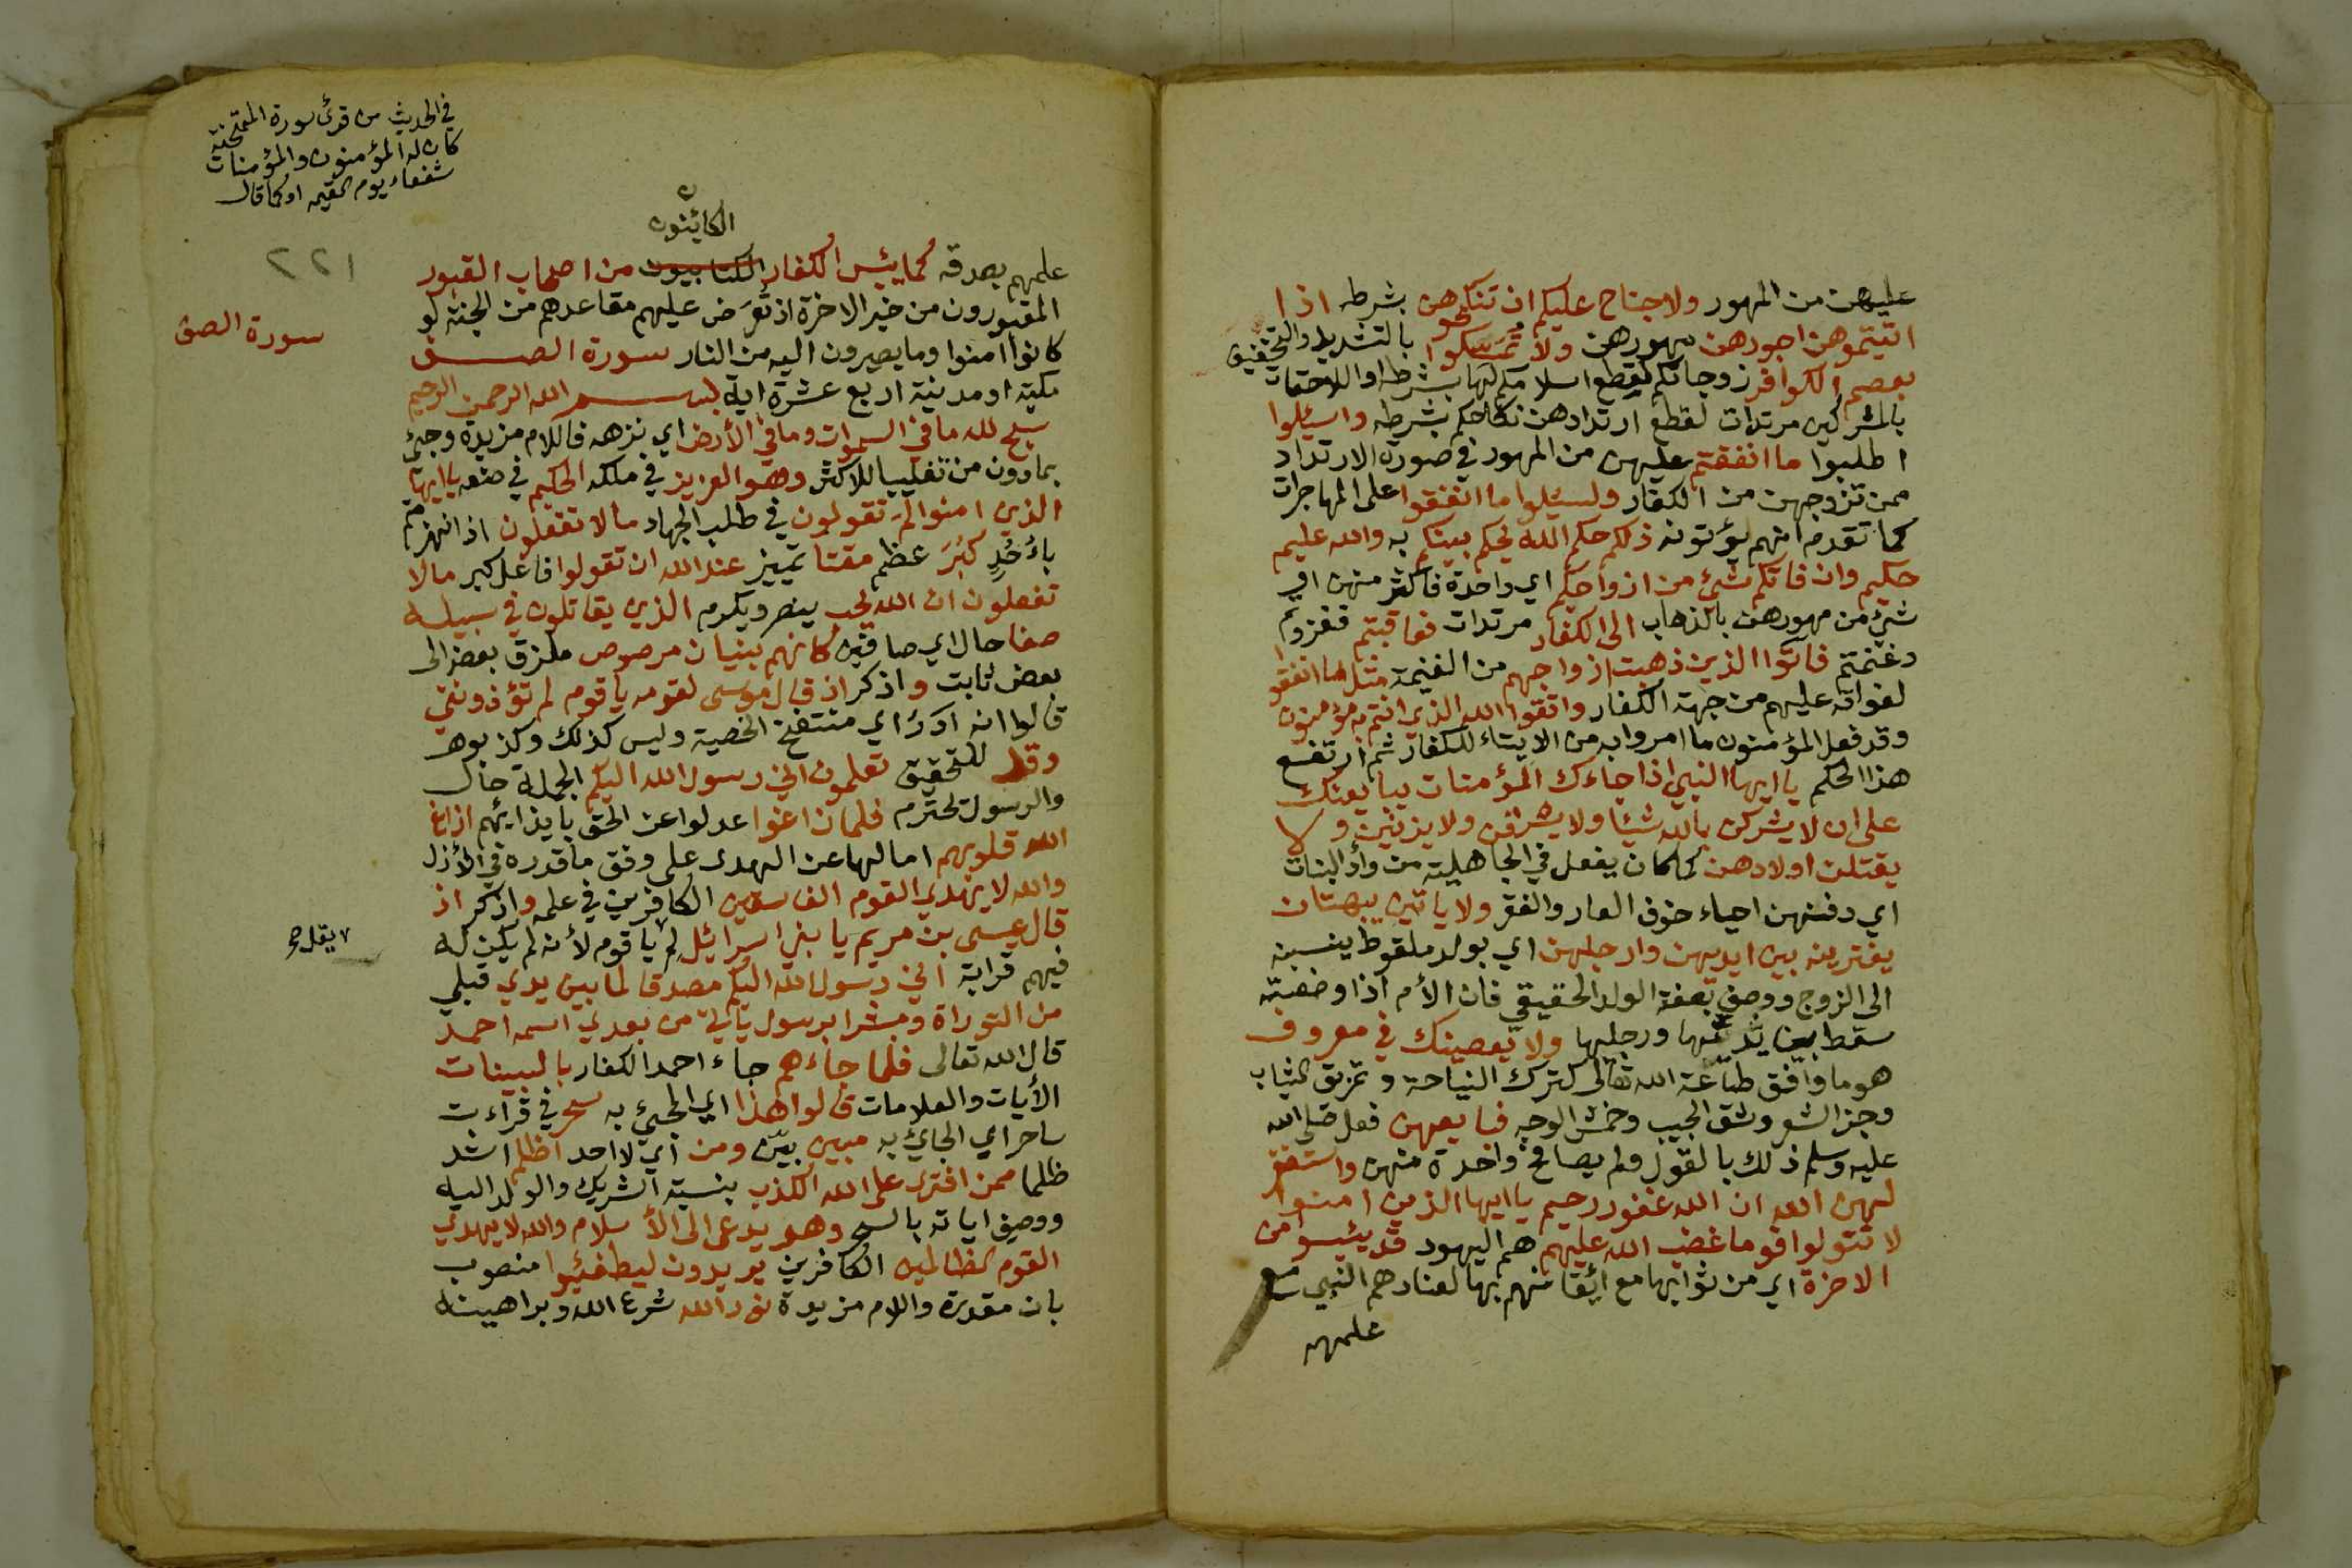 عليهن من المهور ولا جناح عليكم ان تنكحوهن بشرطه اذا
اتيتموهن اجورهن مهورهن ولا تمسكوا بالتشديد والتخفيف
بعصم الكوافر زوجاتكم لقطع اسلامكم لها بشرطه او اللاحقات
بالمشركين مرتدات لقطع ارتدادهن نكاحكم بشرطه واسئلوا
اطلبوا ما انفقتم عليهن من المهور في صورة الارتداد
ممن تزوجهن من الكفار وليسئلوا ما انفقوا على المهاجرات
كما تقدم انهم يؤتونه ذلكم حكم الله يحكم بينكم به والله عليم
حكيم وان فاتكم شئ من ازواجكم اي واحدة فاكثر منهن او
شئ من مهورهن بالذهاب الى الكفار مرتدات فعاقبتم فغزوتم
وغنمتم فاتوا الذين ذهبت ازواجهم من الغنيمة مثل ما انفقوا
لفواته عليهم من جهة الكفار واتقوا الله الذي انتم به مؤمنون
وقد فعل المؤمنون ما امروا به من الايتاء للكفار ثم ارتفع
هذا الحكم يا ايها النبي اذا جاءك المؤمنات يبايعنك
على ان لا يشركن بالله شيئا ولا يسرقن ولا يزنين ولا
يقتلن اولادهن كما كان يفعل في الجاهلية من وأد البنات
اي دفنهن احياء خوف العار والفقر ولا ياتين ببهتان
يفترينه بين ايديهن وارجلهن اي بولد ملقوط ينسبنه
الى الزوج ووصف بصفة الولد الحقيقي فان الأم اذا وضعته
سقط بين يديها ورجليها ولا يعصينك في معروف
هو ما وافق طاعة الله تعالى كترك النياحة وتمزيق الثياب
وجز الشعر وشق الجيب وخمش الوجه فبايعهن فعل صلى الله
عليه وسلم ذلك بالقول ولم يصافح واحدة منهن واستغفر
لهن الله ان الله غفور رحيم يا ايها الذين امنوا
لا تتولوا قوما غضب الله عليهم هم اليهود قد يئسوا من
الاخرة اي من ثوابها مع ايقانهم بها لعنادهم النبي مع
علمهم
في الحديث من قرئ سورة الممتحنة
كان له المؤمنون والمؤمنات
شفعاء يوم القيمه او كما قال
٢٢١
الكائنون
علمهم بصدقه كما يئس الكفار الكتابيون من اصحاب القبور
المقبورون من خير الاخرة اذ تعرض عليهم مقاعدهم من الجنة لو
كانوا امنوا وما يصيرون اليه من النار سورة الصف
سورة الصف
مكية او مدنية اربع عشرة اية بسم الله الرحمن الرحيم
سبح لله ما في السموات وما في الأرض اي نزهه فاللام مزيدة وجئ
بما دون من تغليبا للاكثر وهو العزيز في ملكه الحكيم في صنعه يا ايها
الذين امنوا لم تقولون في طلب الجهاد ما لا تفعلون اذ انهزمتم
بأُحُدٍ كبُرَ عظم مقتا تمييز عند الله ان تقولوا فاعل كبر ما لا
تفعلون ان الله يحب ينصر ويكرم الذين يقاتلون في سبيله
صفا حال اي صافين كانهم بنيان مرصوص ملزق بعضه الى
بعض ثابت واذكر اذ قال موسى لقومه يا قوم لم تؤذونني
قالوا انه ادر اي منتفخ الخصية وليس كذلك وكذبوه
وقد للتحقيق تعلمون اني رسول الله اليكم الجملة حال
والرسول يحترم فلما زاغوا عدلوا عن الحق بايذائهم ازاغ
الله قلوبهم امالها عن الهدى على وفق ما قدره في الأزل
والله لا يهدي القوم الفاسقين الكافرين في علمه واذكر اذ
قال عيسى بن مريم يا بني اسرائيل لم يا قوم لأنه لم يكن له
يقل صح
فيهم قرابة اني رسول الله اليكم مصدقا لما بين يدي قبلي
من التوراة ومبشرا برسول ياتي من بعدي اسمه احمد
قال الله تعالى فلما جاءهم جاء احمد الكفار بالبينات
الأيات والعلامات قالوا هذا اي المجئ به سحر في قراءت
ساحر اي الجائ به مبين بين ومن اي لا احد اظلم اشد
ظلما ممن افترى على الله الكذب بنسبة الشريك والولد اليه
ووصف اياته بالسحر وهو يدعى الى الأسلام والله لا يهدي
القوم الظالمين الكافرين يريدون ليطفئوا منصوب
بان مقدرة واللام مزيدة نور الله شرع الله وبراهينه